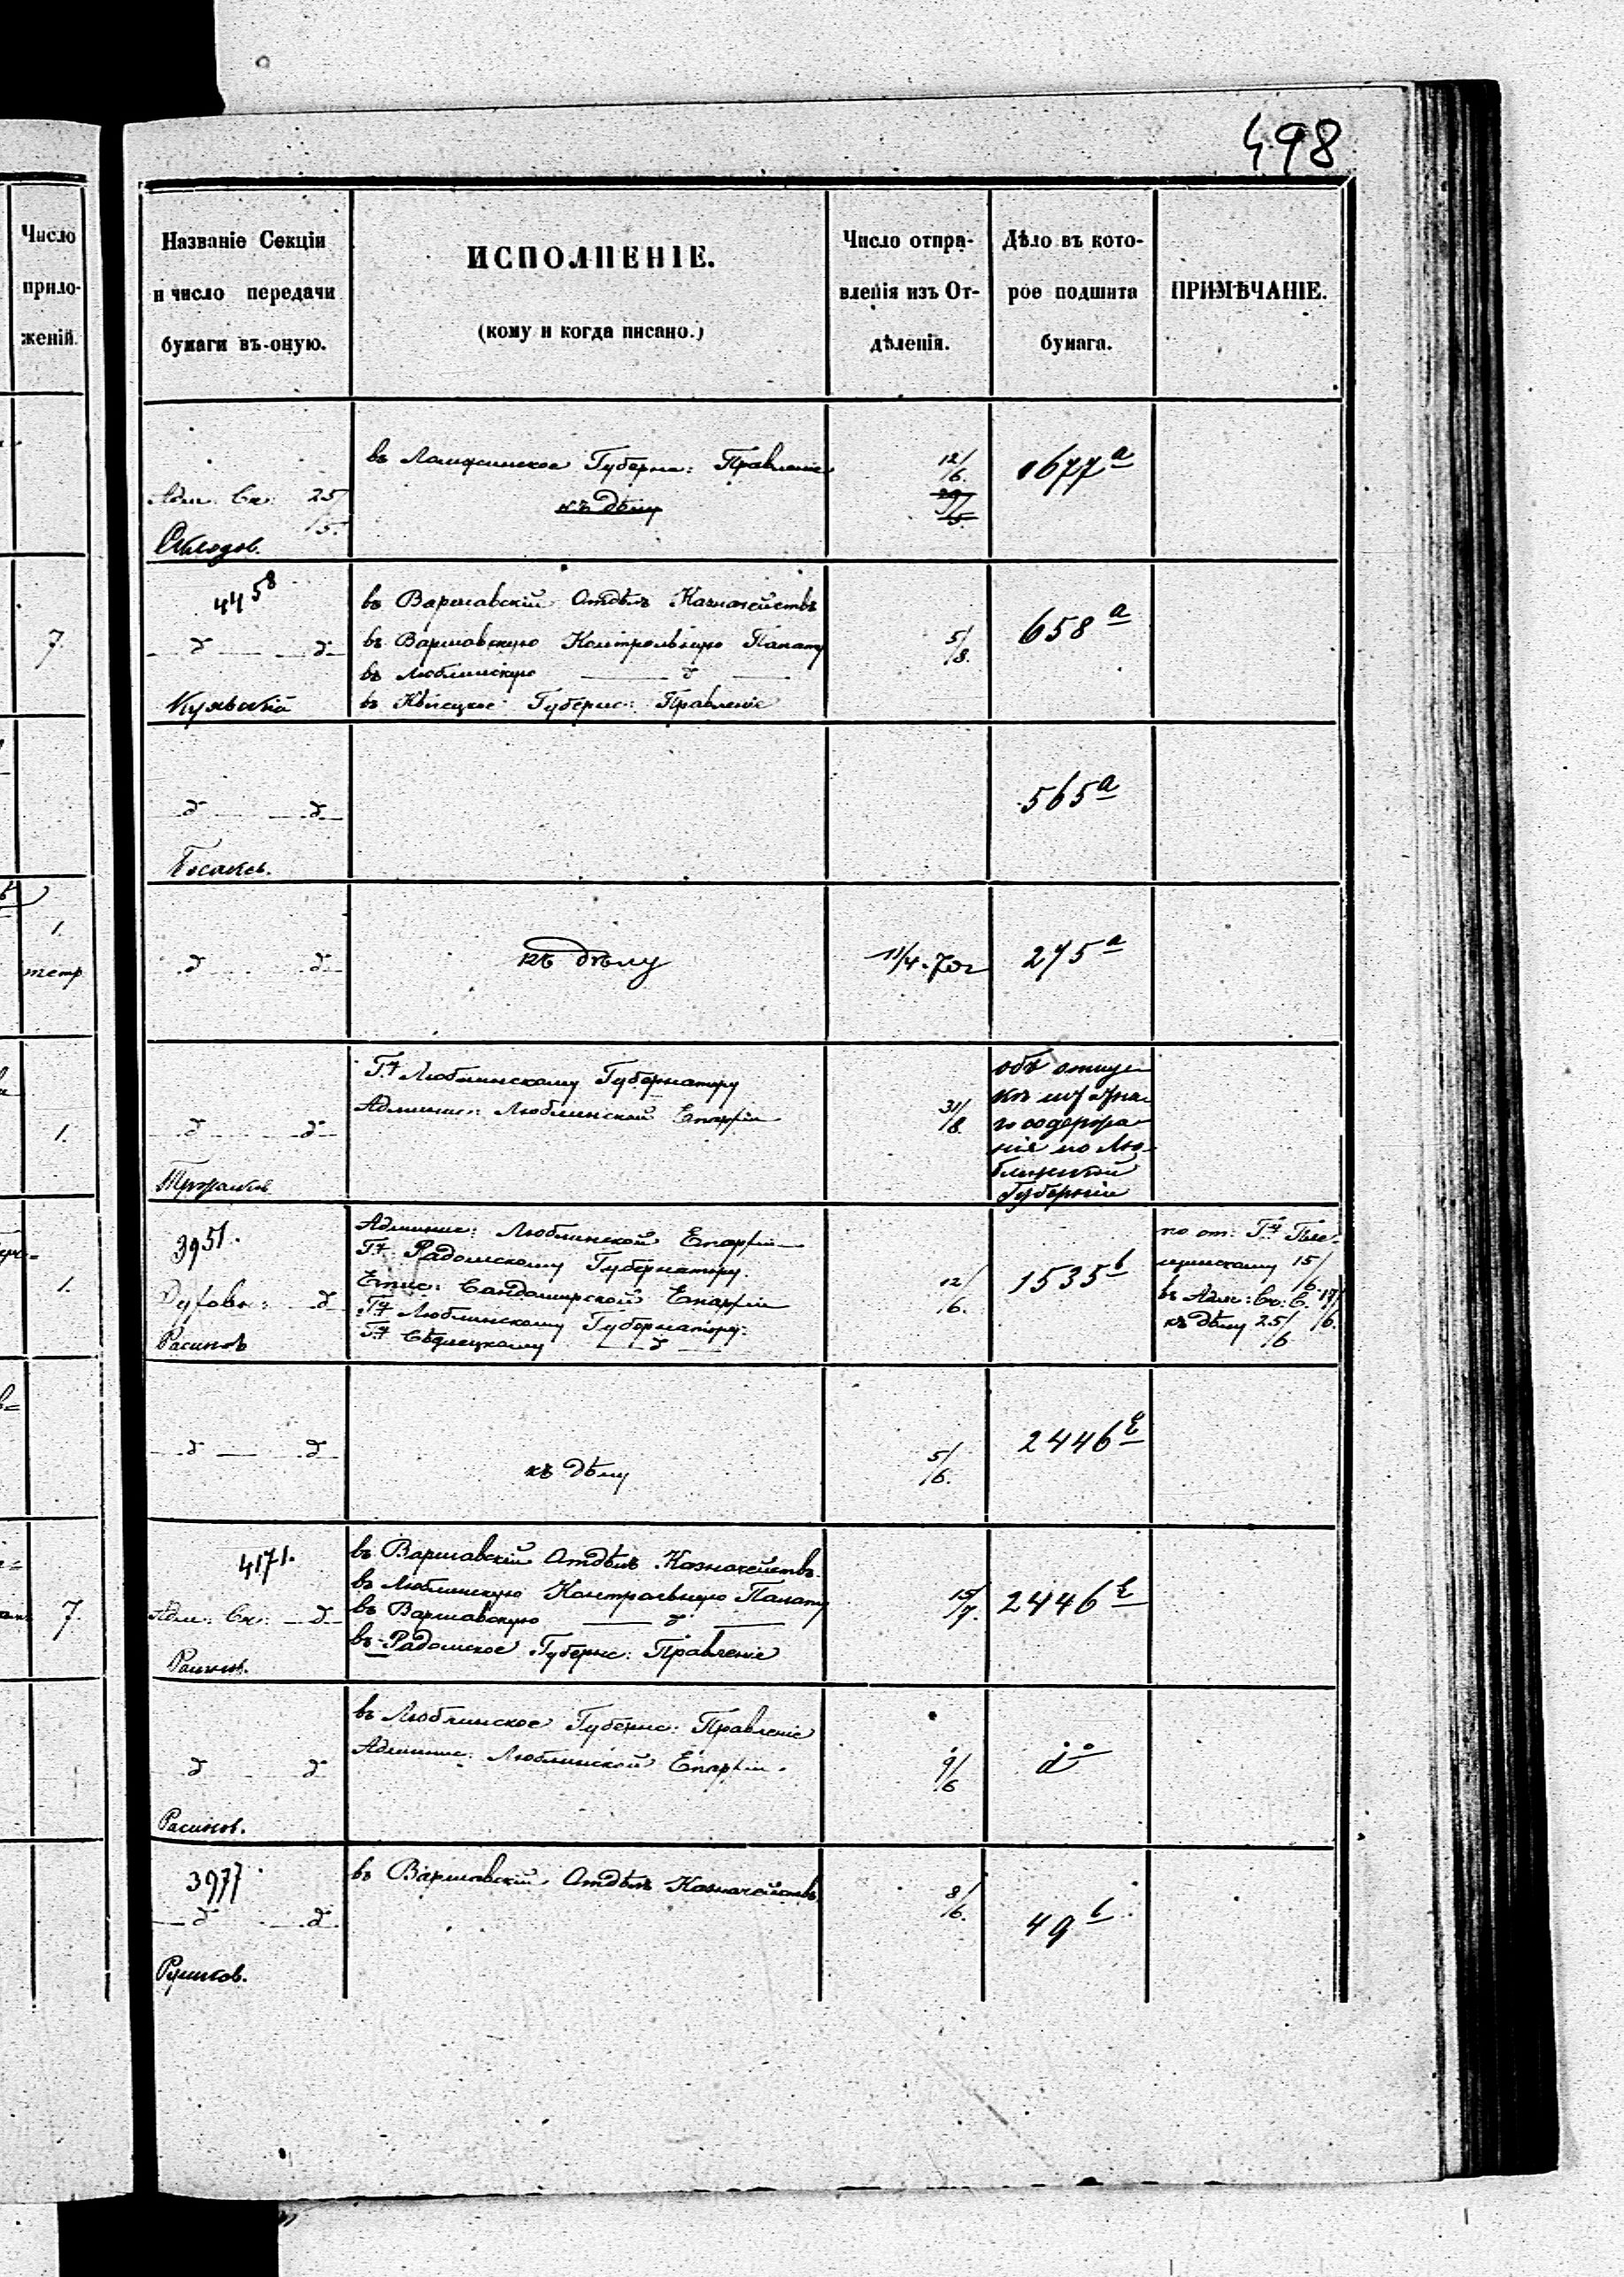 498
Число
прило-
женій.
Названіе Секціи
и число передачи
бумаги въ оную.
ИСПОЛНЕНІЕ.
(кому и когда писано.)
Число отпра-
вленія изъ От-
дѣленія.
Дѣло въ кото-
рое подшита
бумага.
ПРИМѢЧАНІЕ.
Адм. Ск: 25/5.
въ Ломжинское Губерн: Правленіе
къ дѣлу
12/6.
1677 а
7.
4458
д д
въ Варшавскій Отдѣлъ Казначействъ
въ Варшавскую Контрольную Палату
въ Люблинскую д
въ Кѣлецкое Губерн: Правленіе
5/8.
658 а
д д
565 а
1.
тетр
д д
къ дѣлу
11/4
275 а
1.
д д
Гну Люблинскому Губернатору
Админис: Люблинской Епархіи
31/8.
объ отпус-
го содержа-
нія по Лю-
блинской
Губерніи
1.
3951.
Духовн: д
Расинов
Админис: Люблинской Епархіи
Гну Радомскому Губернатору.
Епис: Сандомирской Епархіи
Гну Люблинскому Губернатору.
Гну Сѣдлецкому д
12/6.
1535 b
по от: Гну
15/6
въ Адм: Ск: 17/6.
къ дѣлу 25/6
д д
къ дѣлу
5/6.
2446
7.
4171.
Адм: Ск: д
въ Варшавскій Отдѣлъ Казначействъ.
въ Люблинскую Контрольную Палату
въ Варшавскую д
въ Радомское Губернс: Правленіе
15/7.
2446
д д
Расинов.
въ Люблинское Губернс: Правленіе
Админис: Люблинской Епархіи.
9/6
do
3977
д д
въ Варшавскій Отдѣлъ Казначействъ
8/6.
49 b